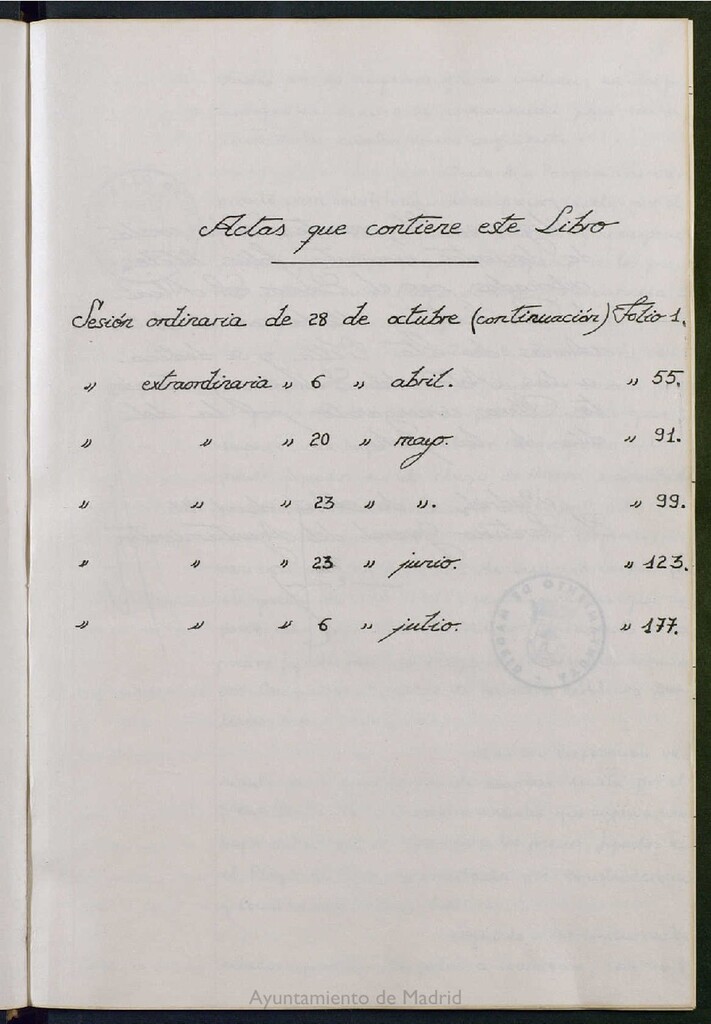 Actas que contiene este Libro
Sesión ordinaria de 28 de octubre (continuación) Folio 1.
" extraordinaria " 6 " abril. " 55.
" " " 20 " mayo. " 91.
" " " 23 " ". " 99.
" " " 23 " junio. " 123.
" " " 6 " julio. " 177.
AYUNTAMIENTO DE MADRID
Ayuntamiento de Madrid